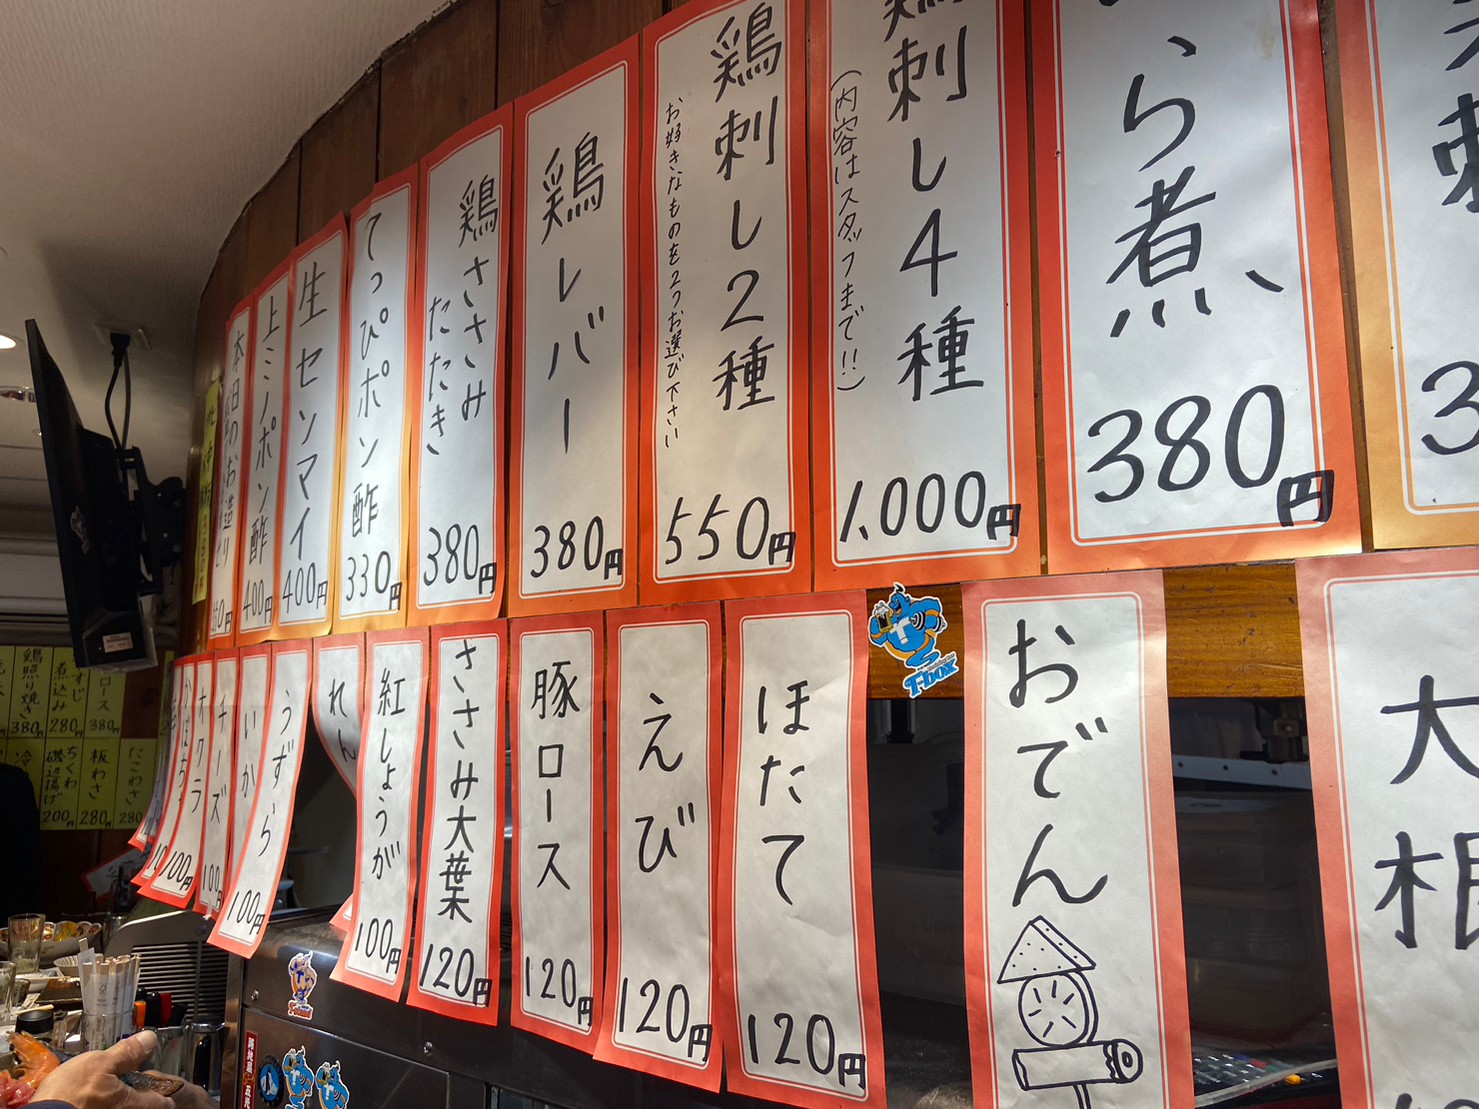 鶏刺し4種
(内容はスタッフまで!!)
1,000円
鶏刺し2種
お好きなものを2つお選び下さい
550円
鶏レバー
380円
鶏ささみ
たたき
380円
てっぴポン酢
330円
生センマイ
400円
上ミノポン酢
400円
本日のお造り
ら煮
380円
大根
おでん
ほたて
120円
えび
120円
豚ロース
120円
ささみ大葉
120円
紅しょうが
100円
れん
うずら
100円
いか
チーズ
100円
オクラ
100円
かぼちゃ
T-box
鶏照り焼き
380円
煮込み
280円
ロース
380円
磯辺揚げ
ちくわ
200円
板わさ
280円
たこわさ
280